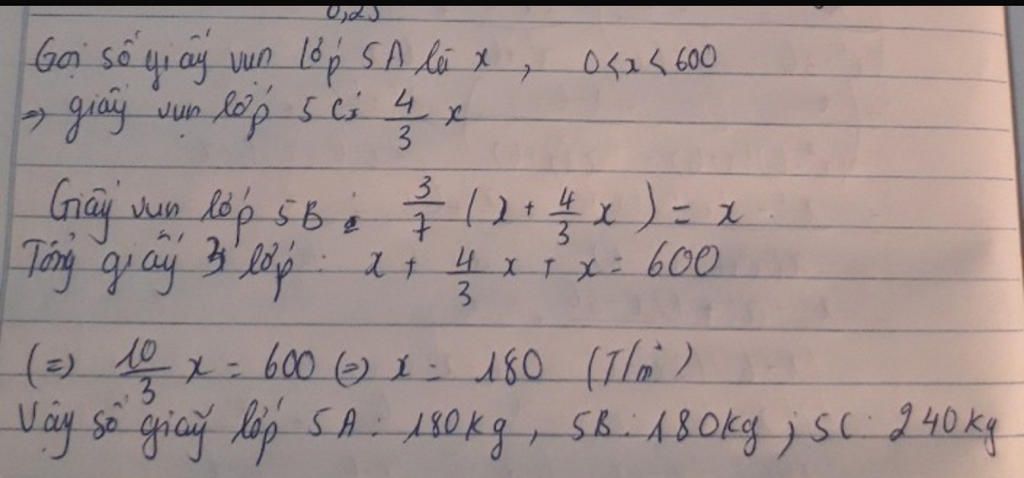 0,25
Gọi số giấy vụn lớp 5A là x , 0<x<600
=> giấy vụn lớp 5C: 4/3 x
Giấy vụn lớp 5B : 3/7 (x + 4/3 x) = x
Tổng giấy 3 lớp : x + 4/3 x + x = 600
(=) 10/3 x = 600 (=) x = 180 (T/m)
Vậy số giấy lớp 5A : 180kg , 5B : 180kg ; 5C : 240kg